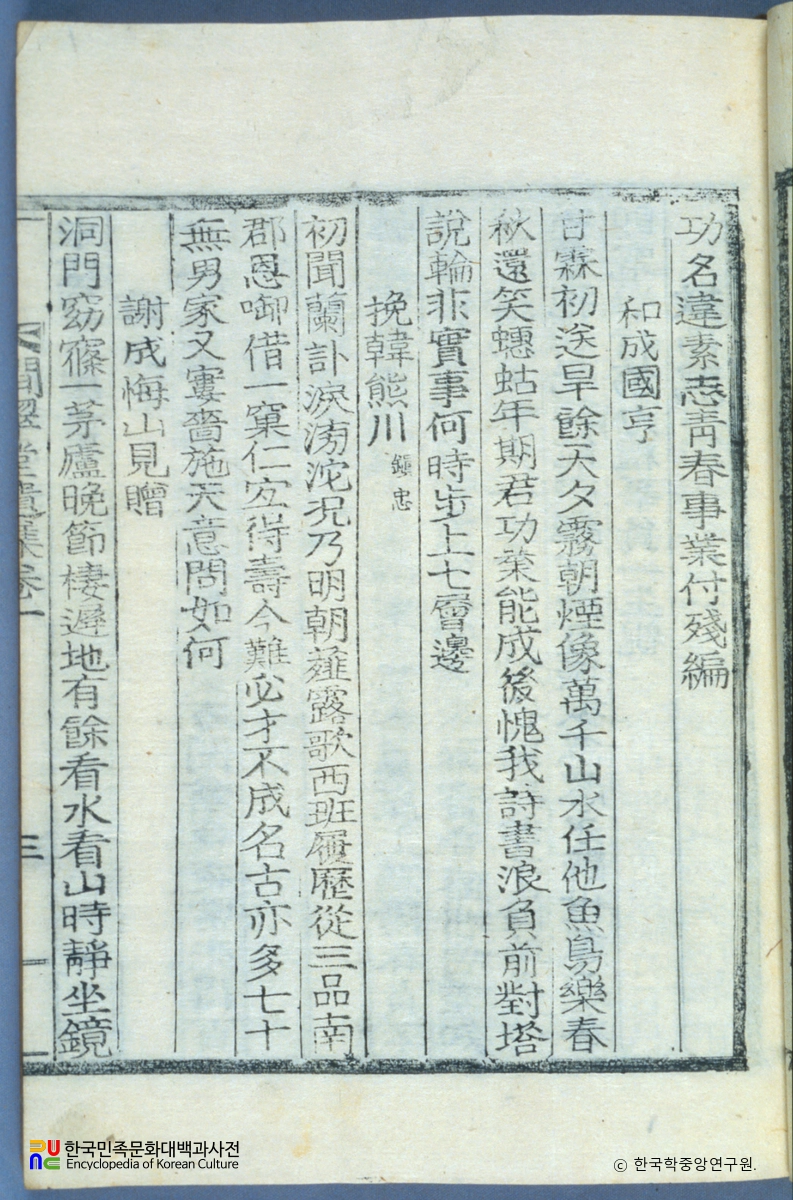 功名違素志靑春事業付殘編
和成國亨
甘霖初送旱餘天夕霧朝煙像萬千山水任他魚鳥樂春
秋還笑蟪蛄年期君功業能成後愧我詩書浪負前對塔
說輪非實事何時步上七層邊
挽韓熊川 鎭忠
初聞蘭訃淚滂沱況乃明朝薤露歌西班履歷從三品南
郡恩啣借一窠仁宜得壽今難必才不成名古亦多七十
無男家又窶嗇施天意問如何
謝成悔山見贈
洞門窈窱一茅廬晩節棲遲地有餘看水看山時靜坐鏡
堂遺集卷一
三
한국민족문화대백과사전
Encyclopedia of Korean Culture
ⓒ 한국학중앙연구원.